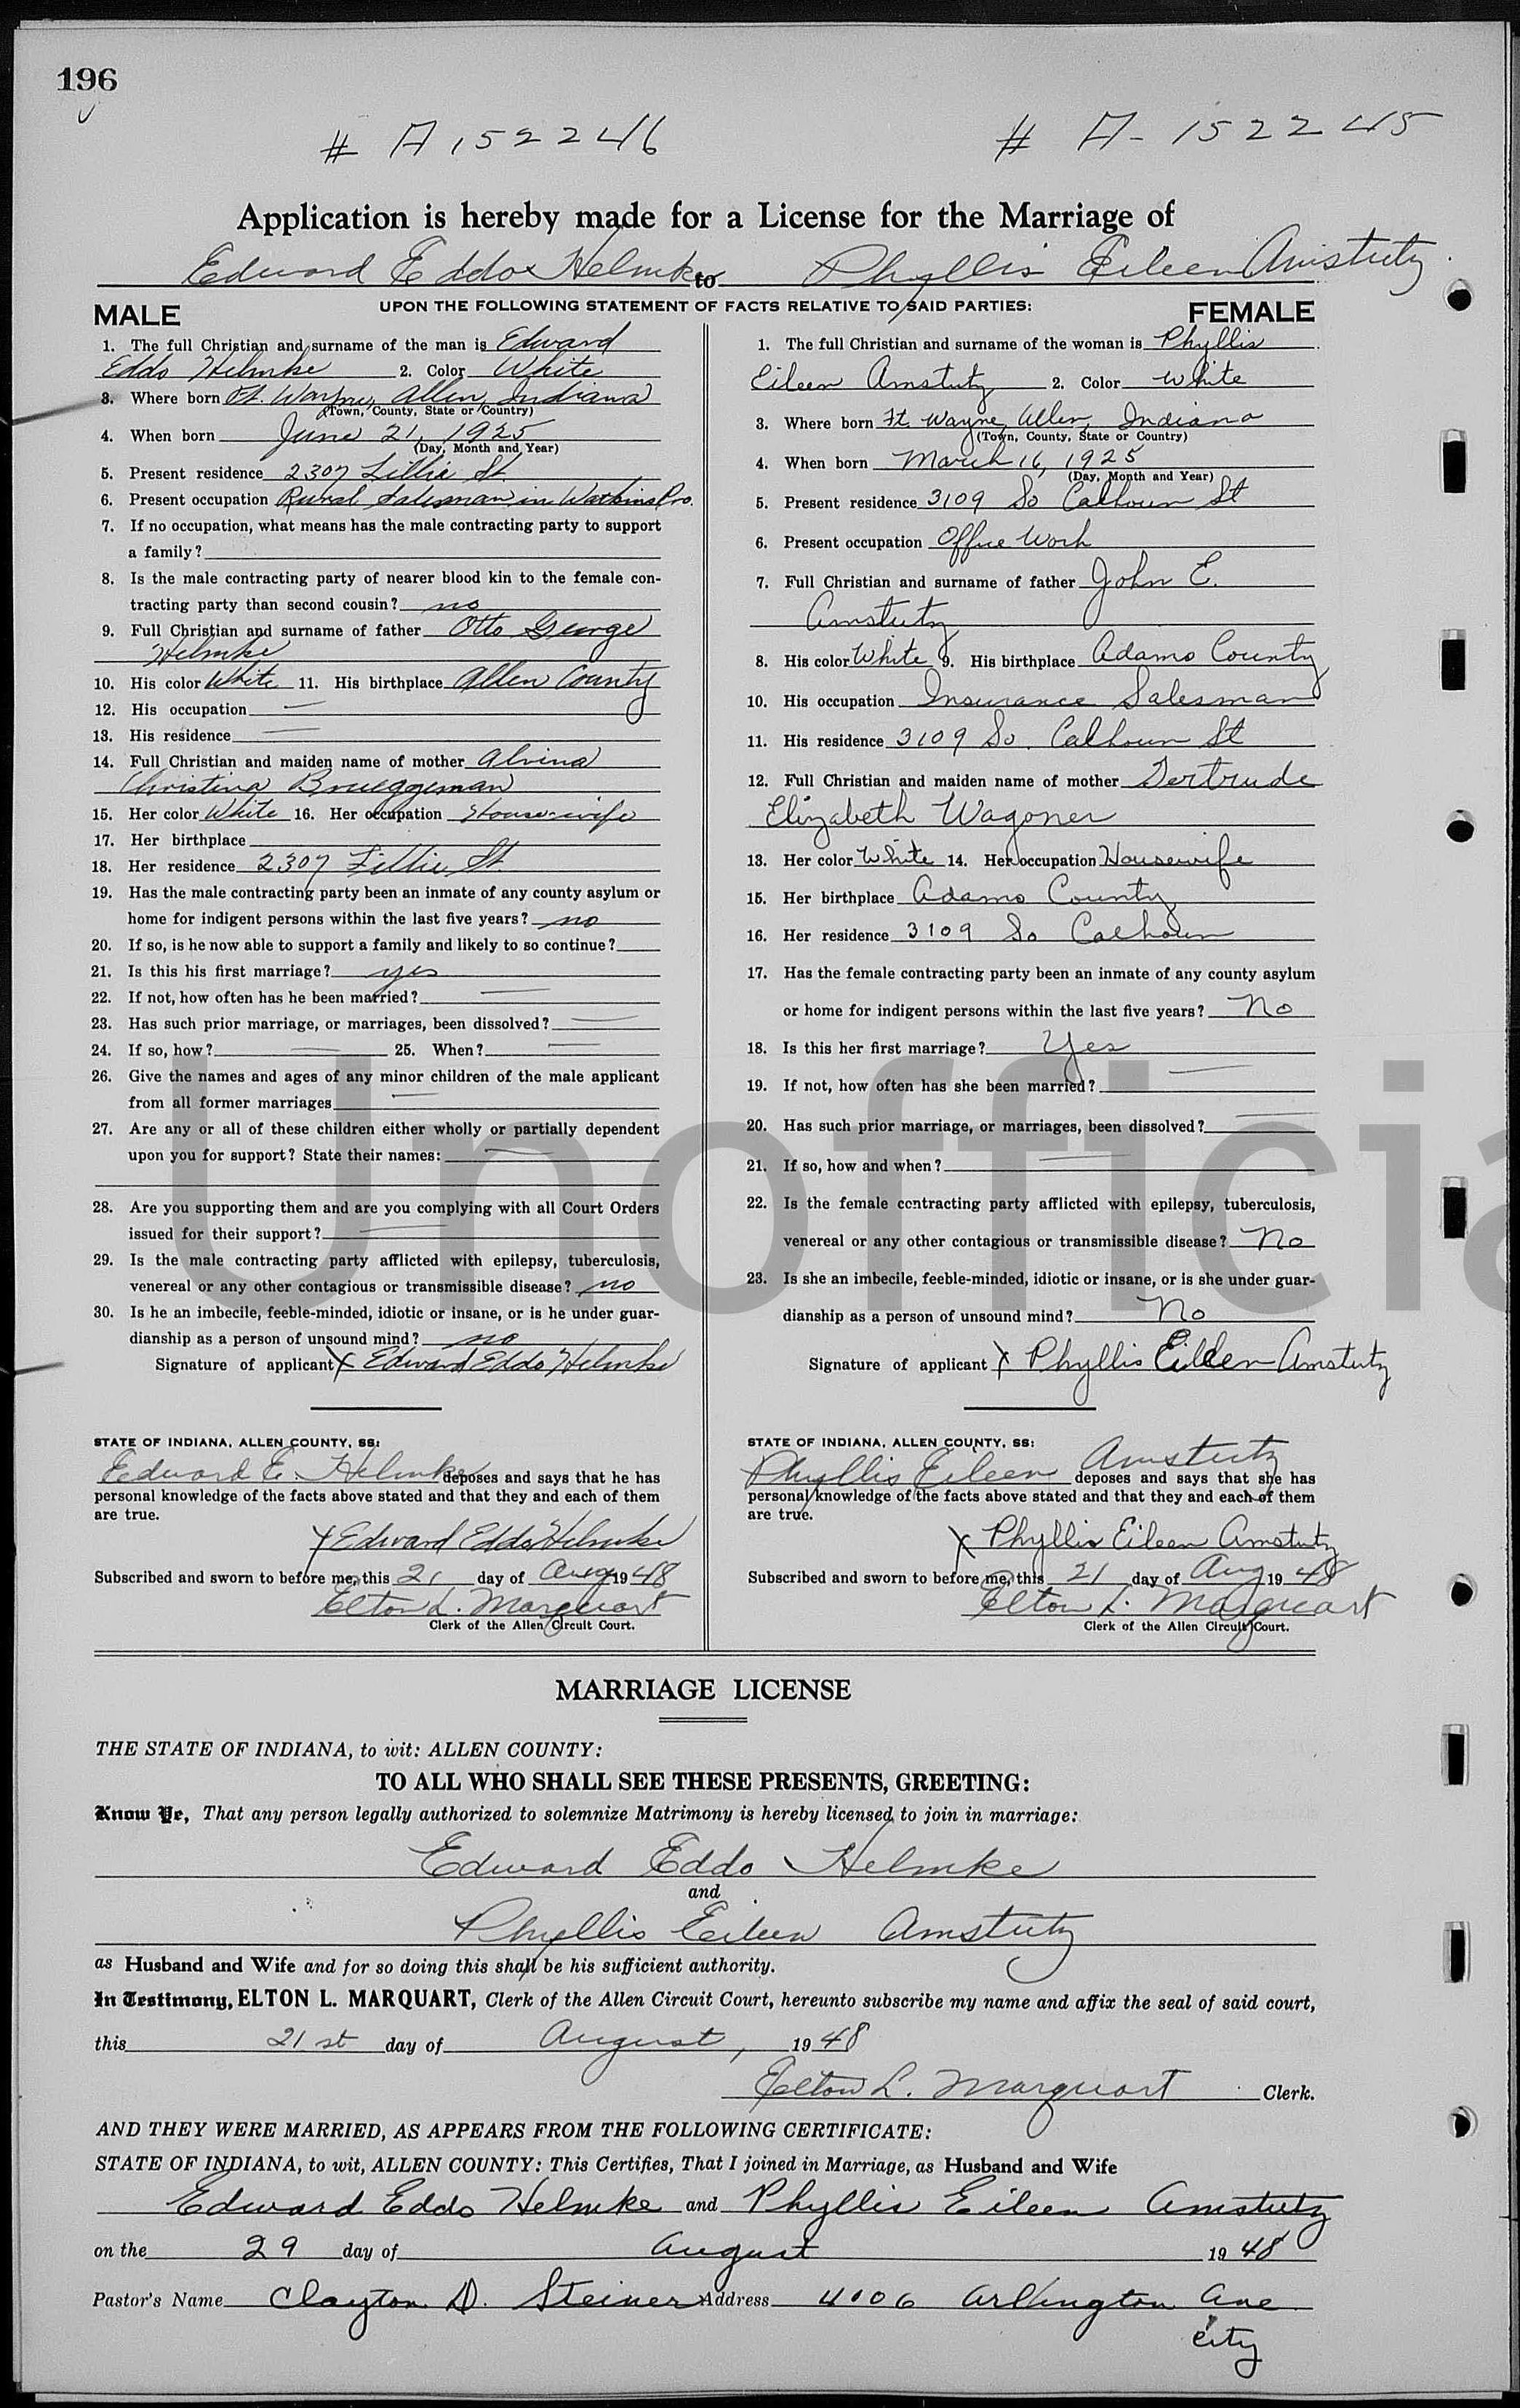 196
# A152246 # A-152245
Application is hereby made for a License for the Marriage of
Edward Eddo Helmke to Phyllis Eileen Amstutz
UPON THE FOLLOWING STATEMENT OF FACTS RELATIVE TO SAID PARTIES:
MALE
1. The full Christian and surname of the man is Edward
Eddo Helmke 2. Color White
3. Where born Ft. Wayne, Allen, Indiana
(Town, County, State or Country)
4. When born June 21, 1925
(Day, Month and Year)
5. Present residence 2307 Lillie St.
6. Present occupation Rural Salesman in Watkins Pro.
7. If no occupation, what means has the male contracting party to support
a family?
8. Is the male contracting party of nearer blood kin to the female con-
tracting party than second cousin? no
9. Full Christian and surname of father Otto George
Helmke
10. His color White 11. His birthplace Allen County
12. His occupation —
13. His residence —
14. Full Christian and maiden name of mother Alvina
Christina Brueggeman
15. Her color White 16. Her occupation Housewife
17. Her birthplace
18. Her residence 2307 Lillie St.
19. Has the male contracting party been an inmate of any county asylum or
home for indigent persons within the last five years? no
20. If so, is he now able to support a family and likely to so continue?
21. Is this his first marriage? yes
22. If not, how often has he been married? —
23. Has such prior marriage, or marriages, been dissolved? —
24. If so, how? — 25. When? —
26. Give the names and ages of any minor children of the male applicant
from all former marriages —
27. Are any or all of these children either wholly or partially dependent
upon you for support? State their names: —
28. Are you supporting them and are you complying with all Court Orders
issued for their support? —
29. Is the male contracting party afflicted with epilepsy, tuberculosis,
venereal or any other contagious or transmissible disease? no
30. Is he an imbecile, feeble-minded, idiotic or insane, or is he under guar-
dianship as a person of unsound mind? no
Signature of applicant X Edward Eddo Helmke
STATE OF INDIANA, ALLEN COUNTY, SS:
Edward E. Helmke deposes and says that he has
personal knowledge of the facts above stated and that they and each of them
are true.
X Edward Eddo Helmke
Subscribed and sworn to before me, this 21 day of Aug 1948
Elton L. Marquart
Clerk of the Allen Circuit Court.
FEMALE
1. The full Christian and surname of the woman is Phyllis
Eileen Amstutz 2. Color White
3. Where born Ft Wayne, Allen, Indiana
(Town, County, State or Country)
4. When born March 16, 1925
(Day, Month and Year)
5. Present residence 3109 So Calhoun St
6. Present occupation Office Work
7. Full Christian and surname of father John E.
Amstutz
8. His color White 9. His birthplace Adams County
10. His occupation Insurance Salesman
11. His residence 3109 So. Calhoun St
12. Full Christian and maiden name of mother Gertrude
Elizabeth Wagoner
13. Her color White 14. Her occupation Housewife
15. Her birthplace Adams County
16. Her residence 3109 So Calhoun
17. Has the female contracting party been an inmate of any county asylum
or home for indigent persons within the last five years? No
18. Is this her first marriage? Yes
19. If not, how often has she been married? —
20. Has such prior marriage, or marriages, been dissolved? —
21. If so, how and when? —
22. Is the female contracting party afflicted with epilepsy, tuberculosis,
venereal or any other contagious or transmissible disease? No
23. Is she an imbecile, feeble-minded, idiotic or insane, or is she under guar-
dianship as a person of unsound mind? No
Signature of applicant X Phyllis Eileen Amstutz
STATE OF INDIANA, ALLEN COUNTY, SS:
Phyllis Eileen Amstutz deposes and says that she has
personal knowledge of the facts above stated and that they and each of them
are true.
X Phyllis Eileen Amstutz
Subscribed and sworn to before me, this 21 day of Aug 1948
Elton L. Marquart
Clerk of the Allen Circuit Court.
Unofficia
MARRIAGE LICENSE
THE STATE OF INDIANA, to wit: ALLEN COUNTY:
TO ALL WHO SHALL SEE THESE PRESENTS, GREETING:
Know Ye, That any person legally authorized to solemnize Matrimony is hereby licensed to join in marriage:
Edward Eddo Helmke
and
Phyllis Eileen Amstutz
as Husband and Wife and for so doing this shall be his sufficient authority.
In Testimony, ELTON L. MARQUART, Clerk of the Allen Circuit Court, hereunto subscribe my name and affix the seal of said court,
this 21st day of August, 1948
Elton L. Marquart Clerk.
AND THEY WERE MARRIED, AS APPEARS FROM THE FOLLOWING CERTIFICATE:
STATE OF INDIANA, to wit, ALLEN COUNTY: This Certifies, That I joined in Marriage, as Husband and Wife
Edward Eddo Helmke and Phyllis Eileen Amstutz
on the 29 day of August 1948
Pastor's Name Clayton D. Steiner Address 4006 Arlington Ave
City